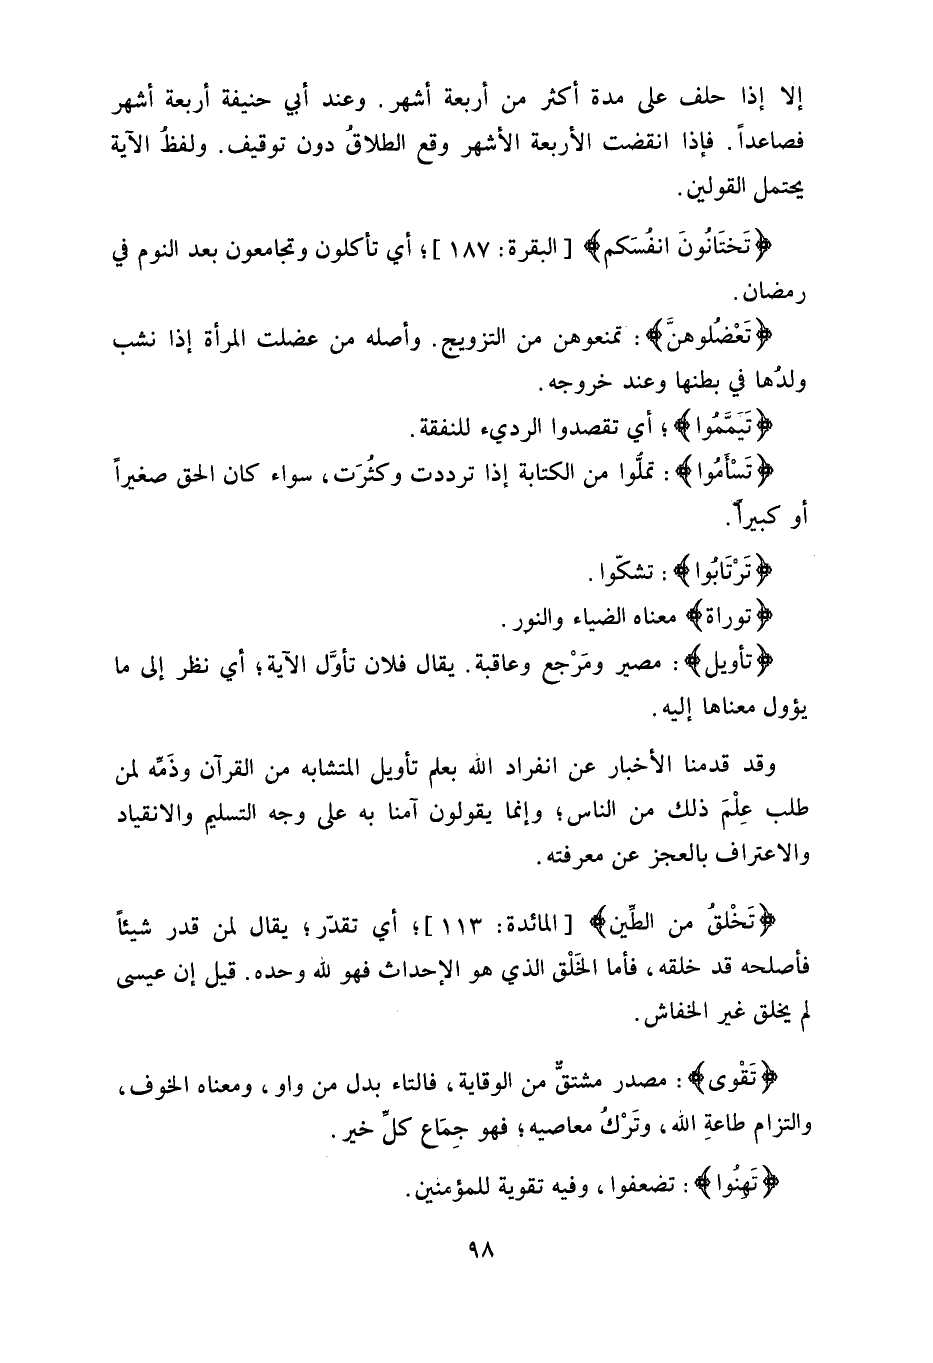 إلا إذا حلف على مدة أكثر من أربعة أشهر. وعند أبي حنيفة أربعة أشهر
فصاعداً. فإذا انقضت الأربعة الأشهر وقع الطلاقُ دون توقيف. ولفظُ الآية
يحتمل القولين.
﴿تَختَانُونَ انفُسَكم﴾ [البقرة: ١٨٧]؛ أي تأكلون وتجامعون بعد النوم في
رمضان.
﴿تَعْضُلوهنَّ﴾: تمنعوهن من التزويج. وأصله من عضلت المرأة إذا نشب
ولدُها في بطنها وعند خروجه.
﴿تَيَمَّمُوا﴾؛ أي تقصدوا الرديء للنفقة.
﴿تَسْأَمُوا﴾: تملُّوا من الكتابة إذا ترددت وكثُرَت، سواء كان الحق صغيراً
أو كبيراً.
﴿تَرْتَابُوا﴾: تشكّوا.
﴿توراة﴾ معناه الضياء والنور.
﴿تأويل﴾: مصير ومَرْجع وعاقبة. يقال فلان تأوَّل الآية؛ أي نظر إلى ما
يؤول معناها إليه.
وقد قدمنا الأخبار عن انفراد الله بعلم تأويل المتشابه من القرآن وذَمِّه لمن
طلب عِلْمَ ذلك من الناس؛ وإنما يقولون آمنا به على وجه التسليم والانقياد
والاعتراف بالعجز عن معرفته.
﴿تَخْلقُ من الطِّين﴾ [المائدة: ١١٣]؛ أي تقدّر؛ يقال لمن قدر شيئاً
فأصلحه قد خلقه، فأما الخَلْق الذي هو الإحداث فهو لله وحده. قيل إن عيسى
لم يخلق غير الخفاش.
﴿تَقْوى﴾: مصدر مشتقٌّ من الوقاية، فالتاء بدل من واو، ومعناه الخوف،
والتزام طاعةِ الله، وتَرْكُ معاصيه؛ فهو جِمَاع كلِّ خير.
﴿تَهِنُوا﴾: تضعفوا، وفيه تقوية للمؤمنين.
٩٨